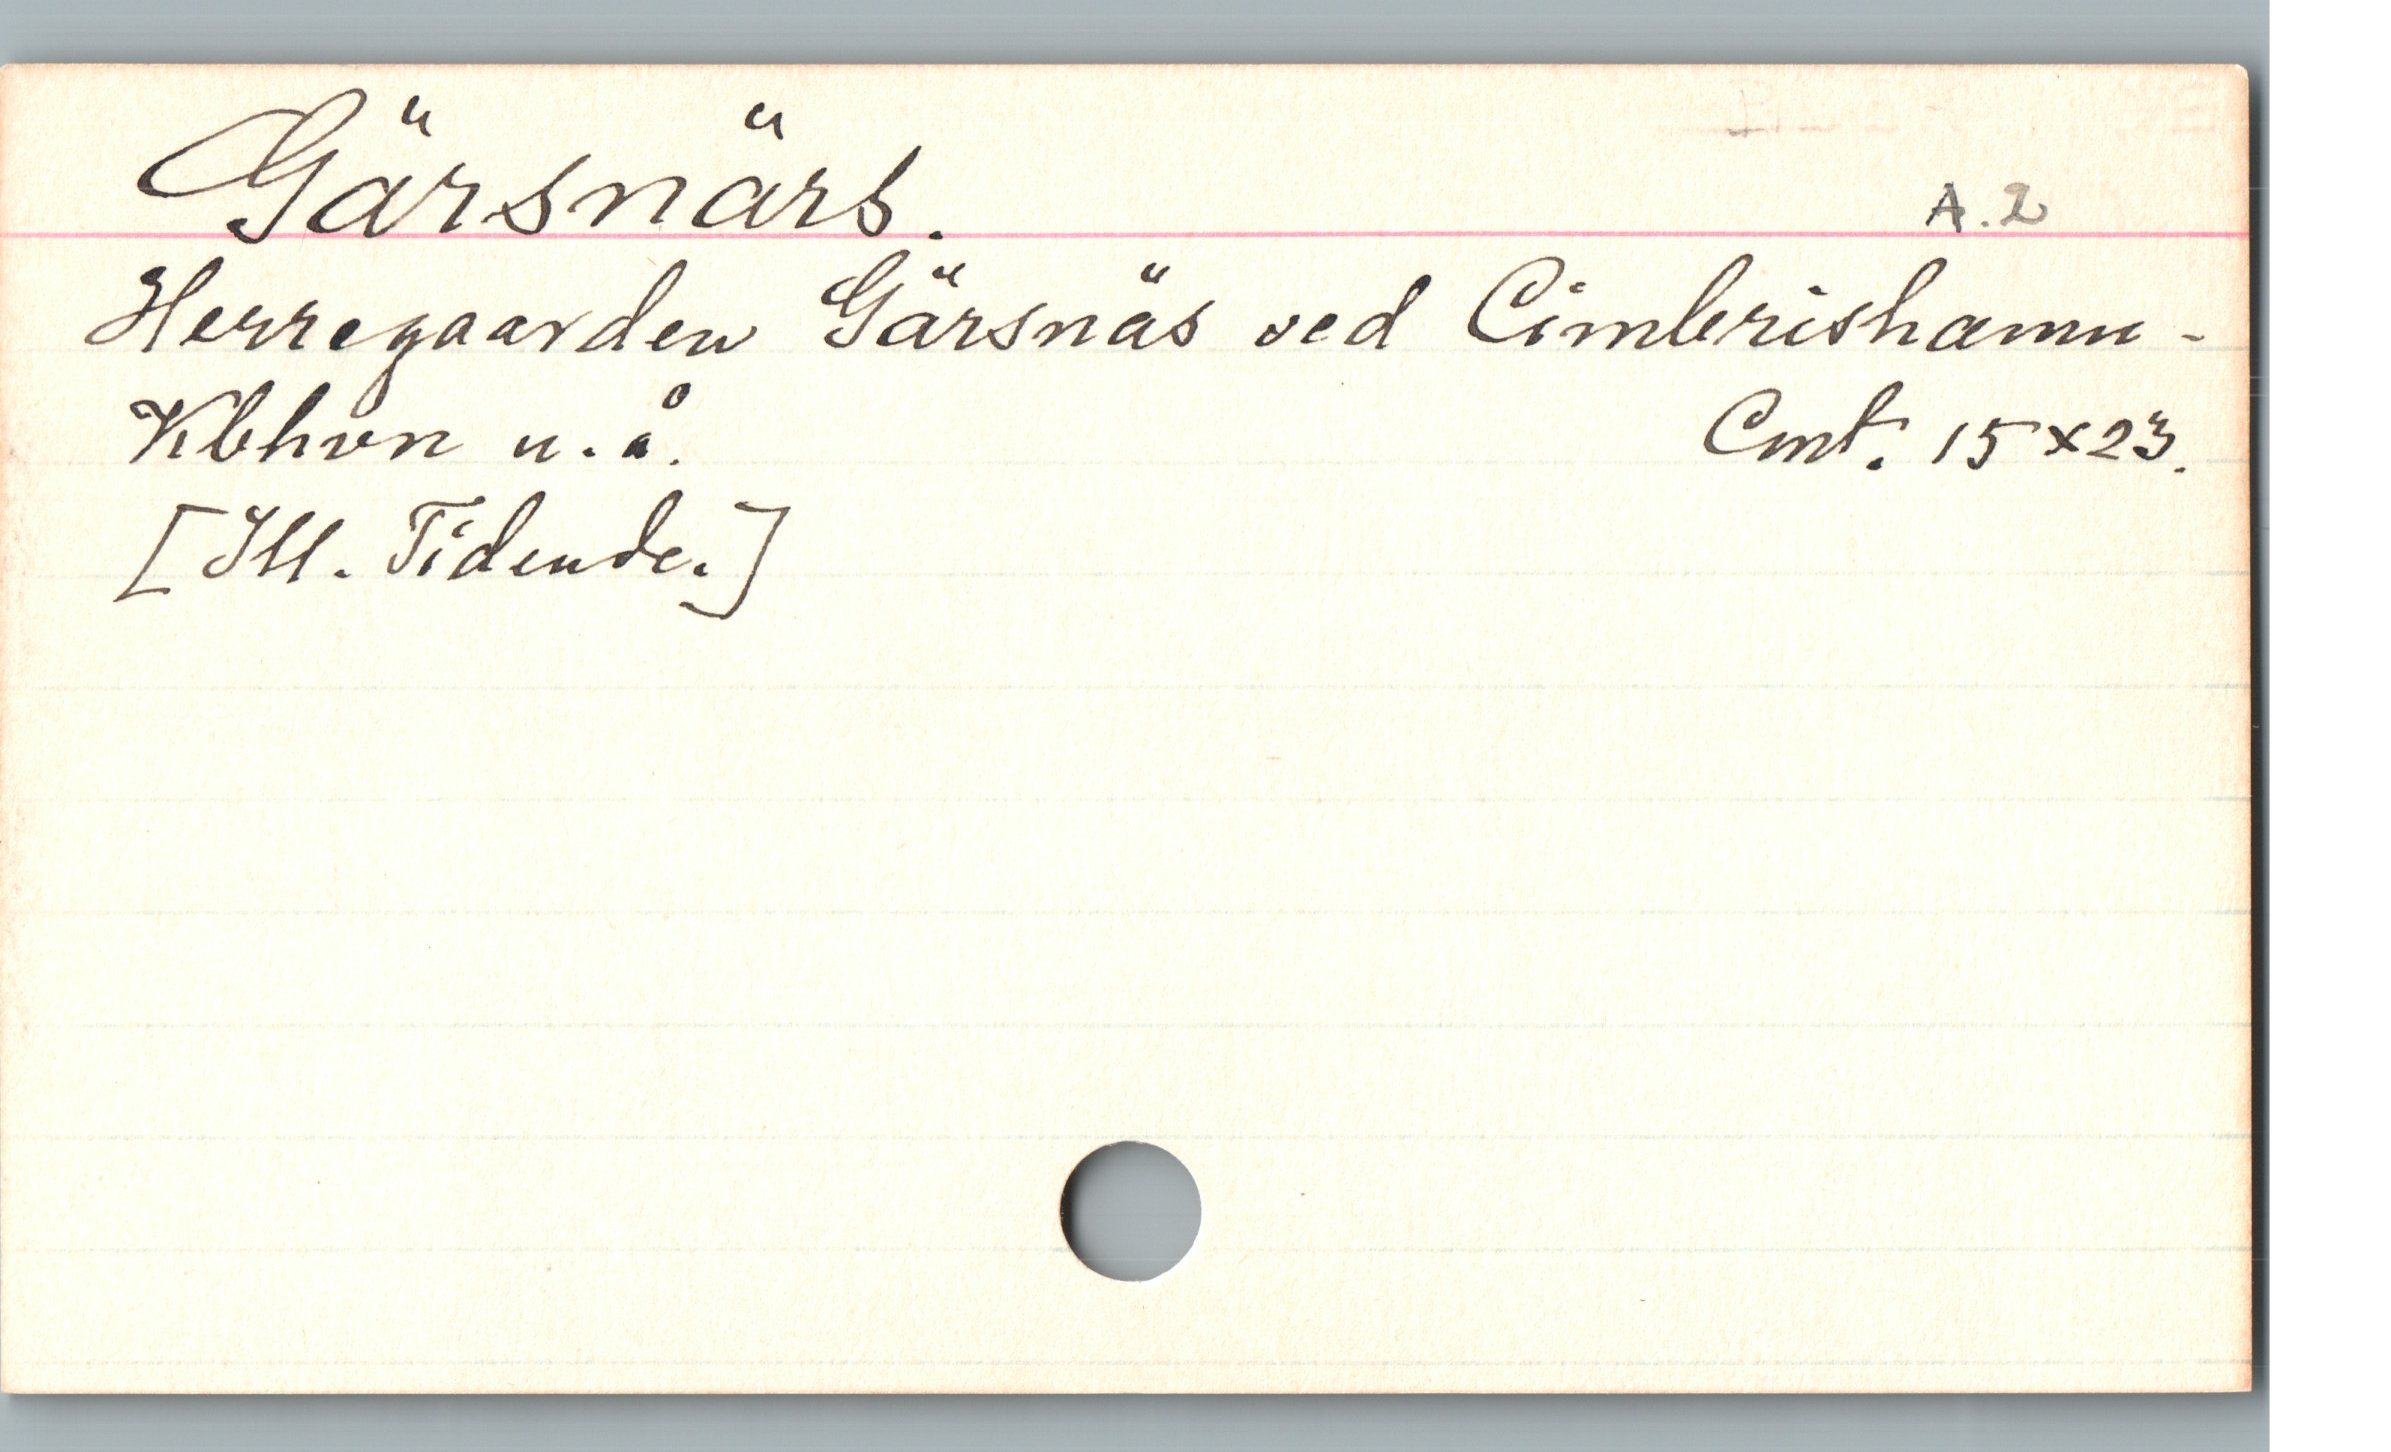 Gärsnärs.
A.2
Herregaarden Gärsnäs ved Cimbrishamn-
Kbhvn u.å.
Cmt. 15×23.
[Ill. Tidende.]